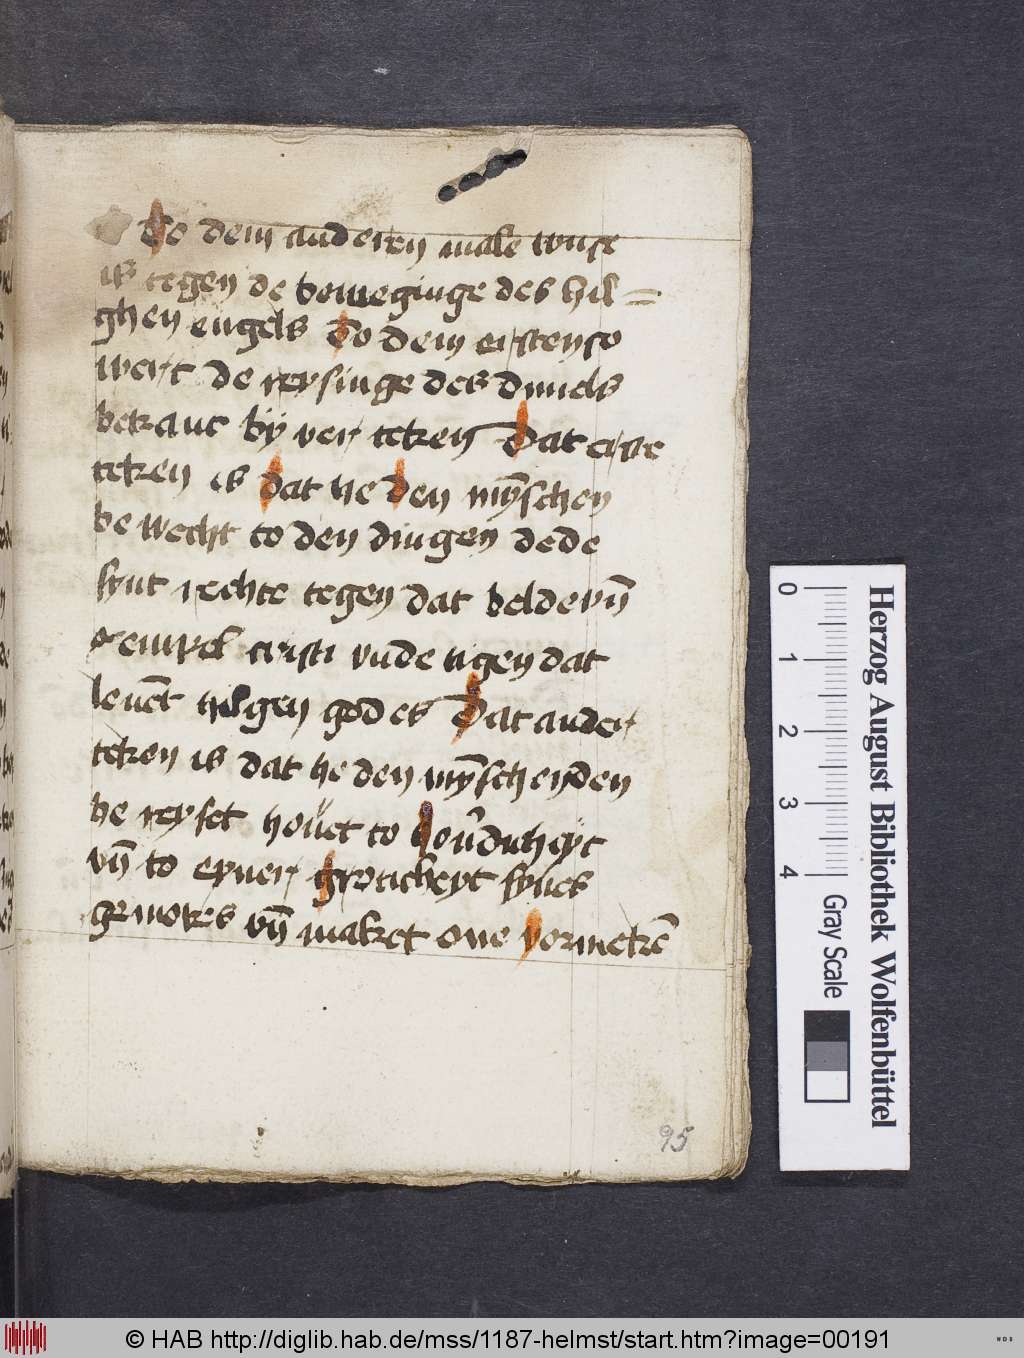 To dem anderen male wuse
is tegen de beweginge des hil=
ghen engels To dem ersten so
wert de reysinge des duuels
bekant by ver teken Dat erste
teken is dat he den mȳschen
be wecht to den dingen dede
synt rechte tegen dat belde vn̄
exempel cristi vnde tigen dat
leuēt hilgen godes Dat ander
teken is dat he den mȳschen den
be reyset houet to houdicheyt
vn̄ to eyner groticheyt synes
gemotes vn̄ maket one vormetē
95
Herzog August Bibliothek Wolfenbüttel
0 1 2 3 4
Gray Scale
© HAB http://diglib.hab.de/mss/1187-helmst/start.htm?image=00191
WDB